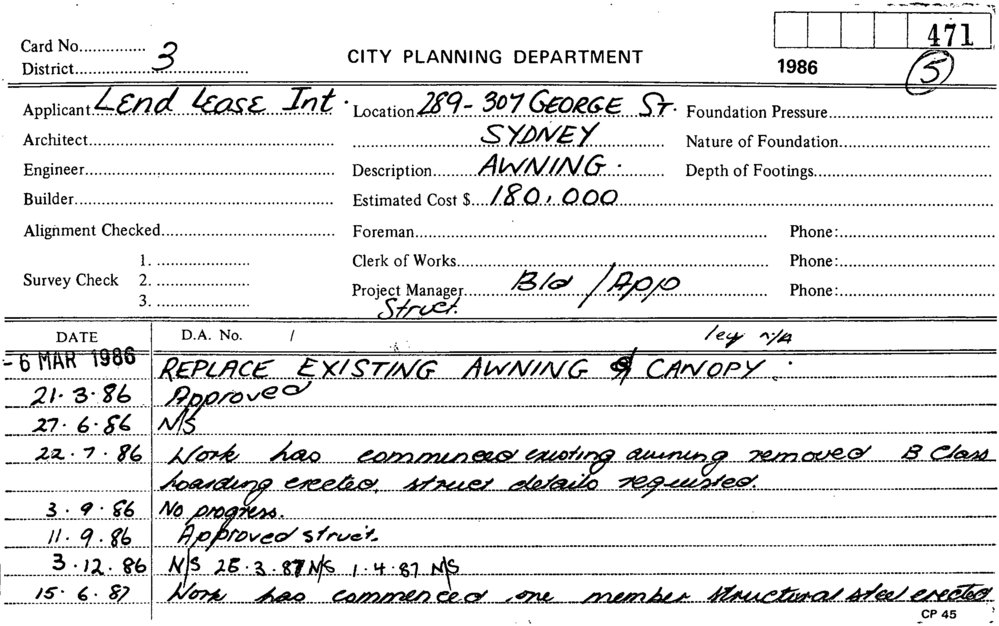 471
Card No............... CITY PLANNING DEPARTMENT 1986 5
District............... 3
Applicant Lend Lease Int. Location 289-307 GEORGE ST. Foundation Pressure...............
Architect............... SYDNEY Nature of Foundation...............
Engineer............... Description AWNING. Depth of Footings...............
Builder............... Estimated Cost $ 180,000
Alignment Checked............... Foreman............... Phone:...............
1. ............... Clerk of Works............... Phone:...............
Survey Check 2. ............... Project Manager Bld/App Phone:...............
3. ............... Struct.
DATE D.A. No. / ley n/A
-6 MAR 1986 REPLACE EXISTING AWNING & CANOPY.
21.3.86 Approved
27.6.86 N/S
22.7.86 Work has commenced existing awning removed B Class
hoarding erected, struct details requested.
3.9.86 No progress.
11.9.86 Approved struct.
3.12.86 N/S 25.3.87 N/S 1.4.87 N/S
15.6.87 Work has commenced one member structural steel erected
CP 45